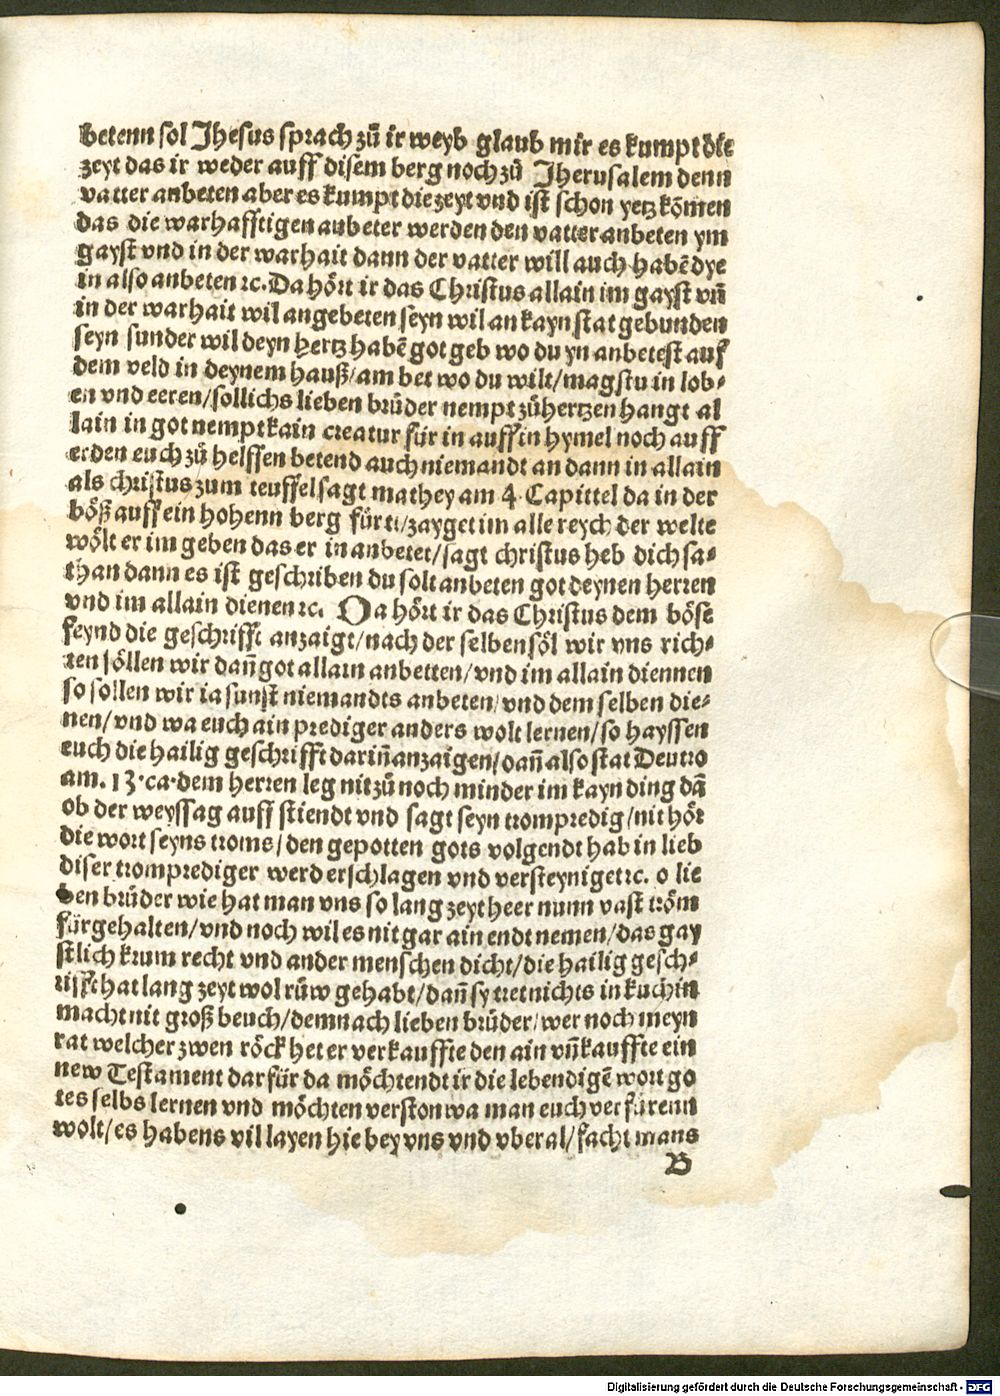 betenn sol Jhesus sprach zů ir weyb glaub mir es kumpt die
zeyt das ir weder auff disem berg noch zů Jherusalem denn
vatter anbeten aber es kumpt die zeyt vnd ist schon yetz kömen
das die warhafftigen anbeter werden den vatter anbeten ym
gayst vnd in der warhait dann der vatter will auch habē dye
in also anbeten ꝛc. Da hört ir das Christus allain im gayst vn̄
in der warhait wil angebeten seyn wil an kayn stat gebunden
seyn sunder wil deyn hertz habē got geb wo du yn anbetest auf
dem veld in deynem hauß/ am bet wo du wilt/ magstu in lob⸗
en vnd eeren/ sollichs lieben brůder nempt zů hertzen hangt al
lain in got nempt kain creatur für in auff in hymel noch auff
erden euch zů helffen betend auch niemandt an dann in allain
als christus zum teuffel sagt mathey am 4 Capittel da in der
böß auff ein hohenn berg fürt/ zayget im alle reych der welte
wölt er im geben das er in anbetet/ sagt christus heb dich sa⸗
than dann es ist geschriben du solt anbeten got deynen herren
vnd im allain dienen ꝛc. Da hört ir das Christus dem böse
feynd die geschrifft anzaigt/ nach der selben söl wir vns rich⸗
ten söllen wir dan̄ got allain anbetten/ vnd im allain diennen
so sollen wir ia sunst niemandts anbeten/ vnd dem selben die⸗
nen/ vnd wa euch ain prediger anders wolt lernen/ so hayssen
euch die hailig geschrifft darin̄ anzaigen/ dan̄ also stat Deutro
am. 13. ca. dem herren leg nit zů noch minder im kayn ding dā
ob der weyssag auff stiendt vnd sagt seyn trompredig/ nit hör
die wort seyns troms/ den gepotten gots volgendt hab in lieb
diser tromprediger werd erschlagen vnd versteyniget ꝛc. o lie
ben brůder wie hat man vns so lang zeyt heer nunn vast tröm
fürgehalten/ vnd noch wil es nit gar ain endt nemen/ das gay
stlich krum recht vnd ander menschen dicht/ die hailig gesch⸗
rifft hat lang zeyt wol růw gehabt/ dan̄ sy tret nichts in kuchin
macht nit groß beuch/ demnach lieben brůder/ wer noch meyn
rat welcher zwen röck het er verkauffte den ain vn̄ kauffte ein
new Testament darfür da möchtendt ir die lebendigē wort go
tes selbs lernen vnd möchten verston wa man euch verfürenn
wolt/ es habens vil layen hie bey vns vnd vberal/ facht mans
B
Digitalisierung gefördert durch die Deutsche Forschungsgemeinschaft - DFG